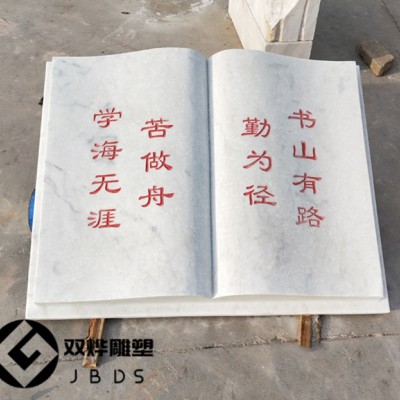 书山有路
勤为径
学海无涯
苦做舟
双烨雕塑
JBDS